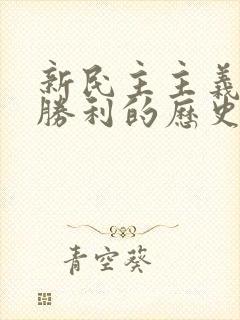 新民主主義
勝利的歷史
青空葵